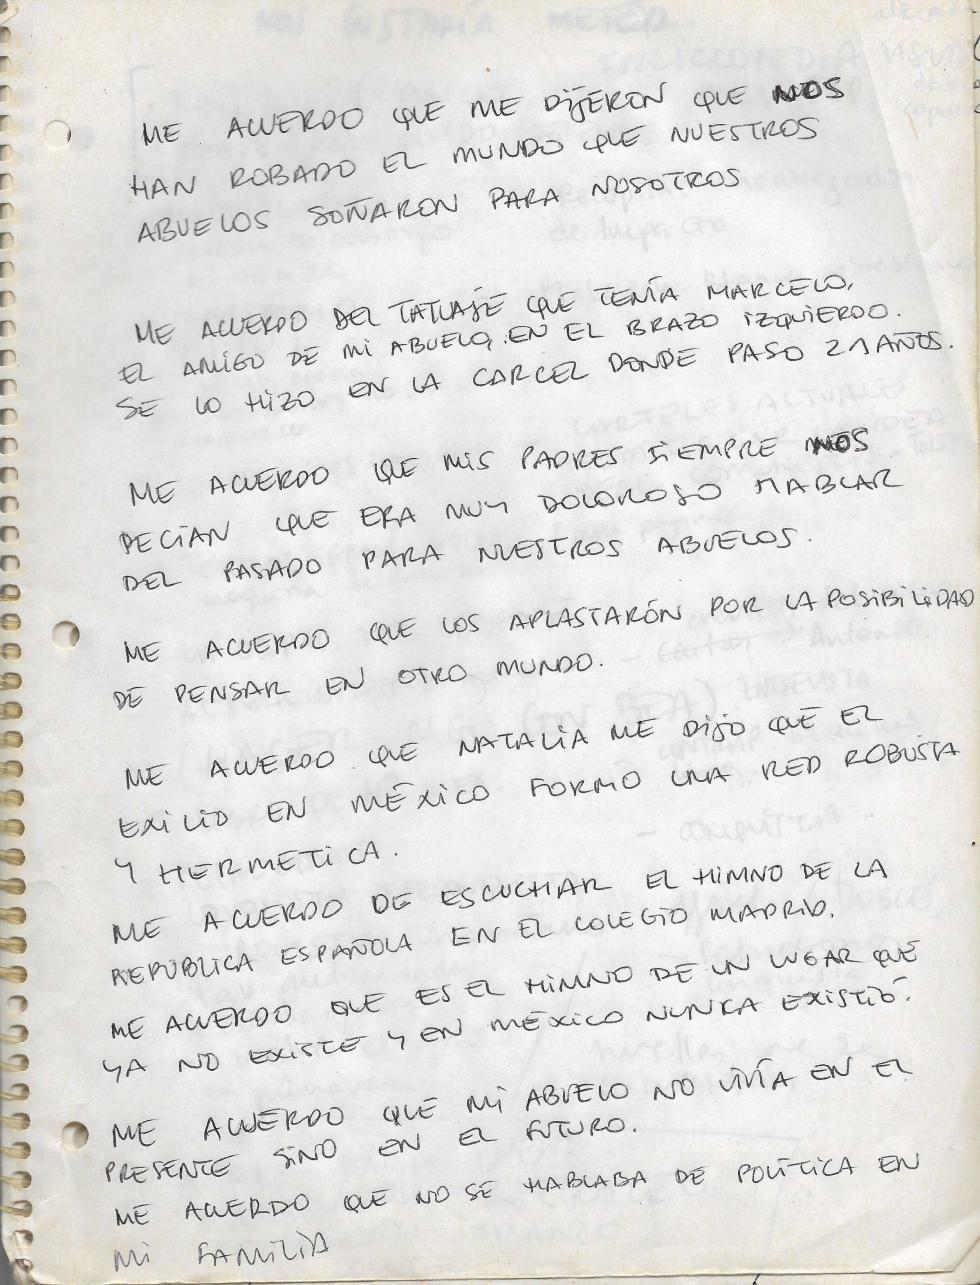 ME ACUERDO QUE ME DIJERON QUE NOS
HAN ROBADO EL MUNDO QUE NUESTROS
ABUELOS SOÑARON PARA NOSOTROS
ME ACUERDO DEL TATUAJE QUE TENÍA MARCELO,
EL AMIGO DE MI ABUELO, EN EL BRAZO IZQUIERDO.
SE LO HIZO EN LA CARCEL DONDE PASO 21 AÑOS.
ME ACUERDO QUE MIS PADRES SIEMPRE NOS
DECÍAN QUE ERA MUY DOLOROSO HABLAR
DEL PASADO PARA NUESTROS ABUELOS.
ME ACUERDO QUE LOS APLASTARÓN POR LA POSIBILIDAD
DE PENSAR EN OTRO MUNDO.
ME ACUERDO QUE NATALIA ME DIJO QUE EL
EXILIO EN MÉXICO FORMO UNA RED ROBUSTA
Y HERMETICA.
ME ACUERDO DE ESCUCHAR EL HIMNO DE LA
REPÚBLICA ESPAÑOLA EN EL COLEGIO MADRID.
ME ACUERDO QUE ES EL HIMNO DE UN LUGAR QUE
YA NO EXISTE Y EN MÉXICO NUNCA EXISTIÓ.
ME ACUERDO QUE MI ABUELO NO VIVÍA EN EL
PRESENTE SINO EN EL FUTURO.
ME ACUERDO QUE NO SE HABLABA DE POLÍTICA EN
MI FAMILIA